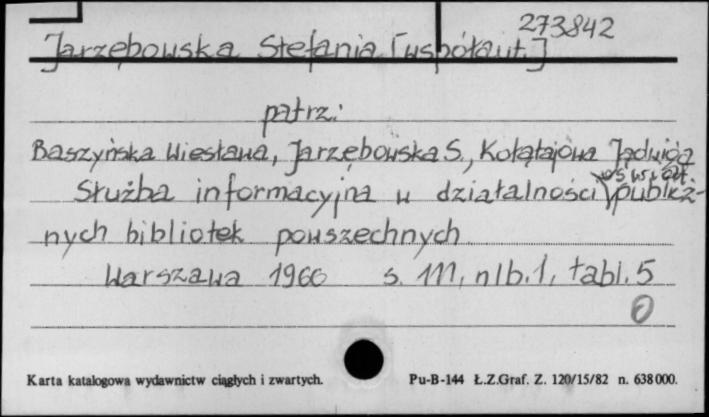 273842
Jarzębowska Stefania [współaut.]
patrz:
Baszyńska Wiesława, Jarzębowska S., Kołątajowa Jadwiga
Służba informacyjna w działalności publicz-
nych bibliotek powszechnych
Warszawa 1960 s. 111, nlb. 1, tabl. 5
Karta katalogowa wydawnictw ciągłych i zwartych. Pu-B-144 Ł.Z.Graf. Z. 120/15/82 n. 638000.